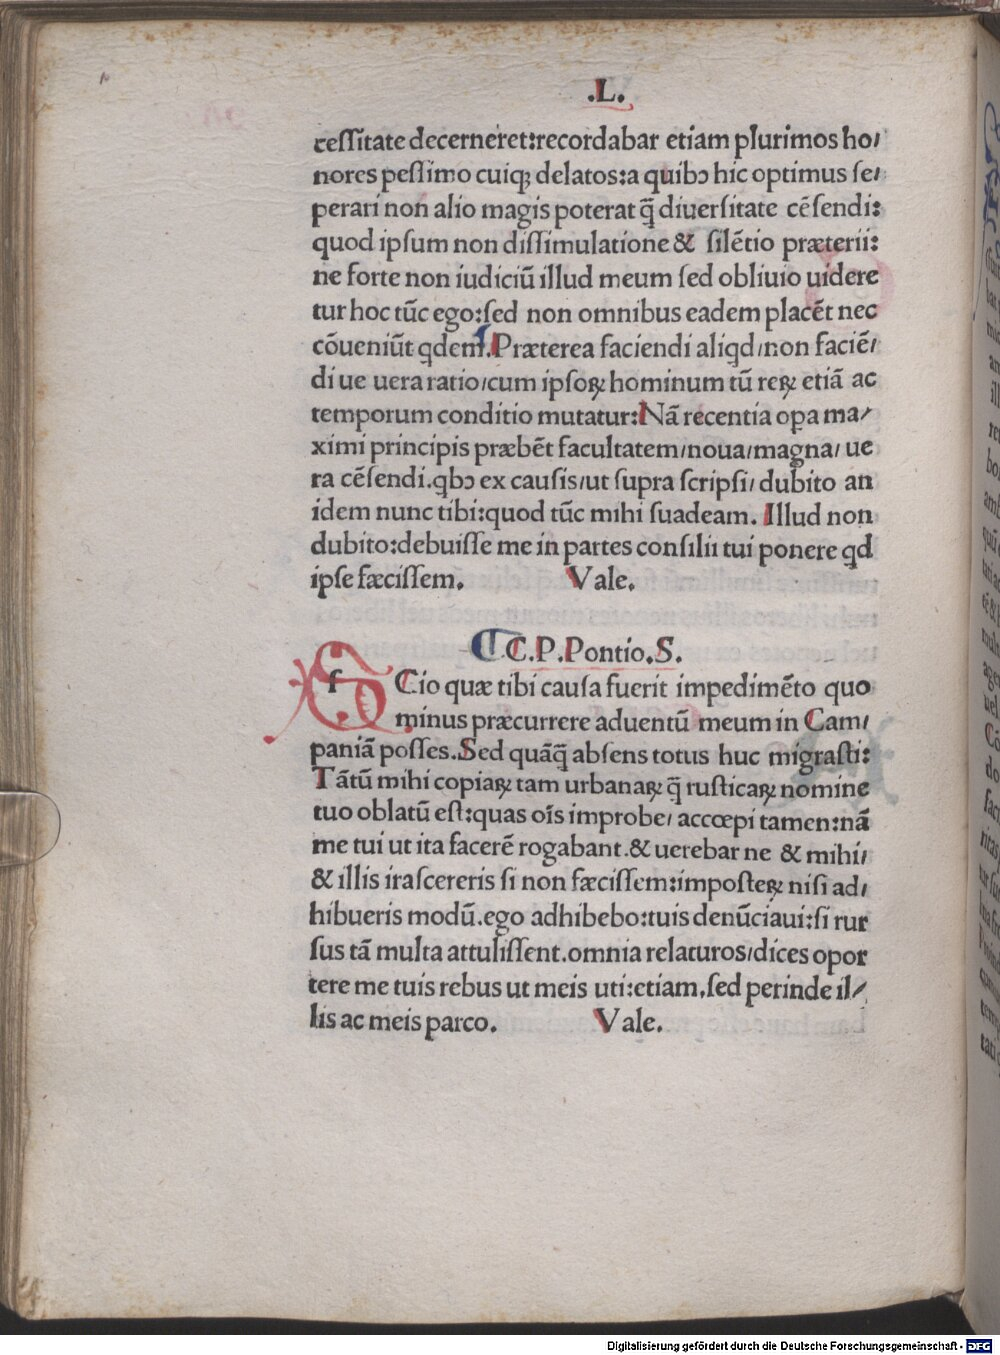 .L.
ceſſitate decerneret:recordabar etiam plurimos ho/
nores peſſimo cuiqꝫ delatos:a quibꝰ hic optimus ſe/
perari non alio magis poterat q̄ diuerſitate cēſendi:
quod ipſum non diſſimulatione & ſilētio præterii:
ne forte non iudiciū illud meum ſed obliuio uidere
tur hoc tūc ego:ſed non omnibus eadem placēt nec
cōueniūt qdem.Præterea faciendi aliqd/non faciē/
di ue uera ratio/cum ipſoꝝ hominum tū reꝝ etiā ac
temporum conditio mutatur:Nā recentia oꝑa ma/
ximi principis præbēt facultatem/noua/magna/ ue
ra cēſendi.qbꝰ ex cauſis/ut ſupra ſcripſi/ dubito an
idem nunc tibi:quod tūc mihi ſuadeam. Illud non
dubito:debuiſſe me in partes conſilii tui ponere qd
ipſe fæciſſem. Vale.
C.P.Pontio.S.
ſ Cio quæ tibi cauſa fuerit impedimēto quo
minus præcurrere aduentū meum in Cam/
paniā poſſes.Sed quāq̄ abſens totus huc migraſti:
Tātū mihi copiaꝝ tam urbanaꝝ q̄ ruſticaꝝ nomine
tuo oblatū eſt:quas oīs improbe/ accœpi tamen:nā
me tui ut ita facerē rogabant.& uerebar ne & mihi/
& illis iraſcereris ſi non fæciſſem:impoſteꝝ niſi ad/
hibueris modū.ego adhibebo:tuis denūciaui:ſi rur
ſus tā multa attuliſſent.omnia relaturos/dices opor
tere me tuis rebus ut meis uti:etiam,ſed perinde il/
lis ac meis parco. Vale.
Digitalisierung gefördert durch die Deutsche Forschungsgemeinschaft - DFG